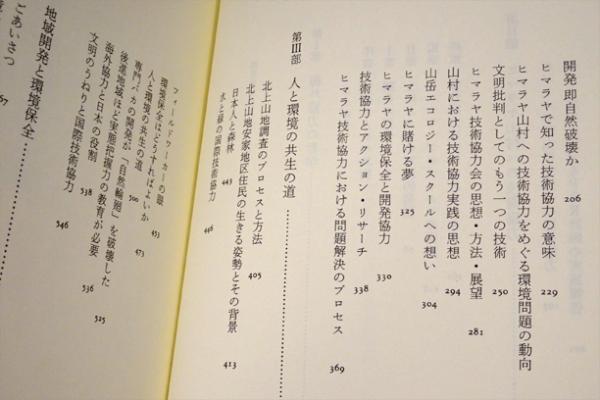 開発即自然破壊か 206
ヒマラヤで知った技術協力の意味 229
ヒマラヤ山村への技術協力をめぐる環境問題の動向
文明批判としてのもう一つの技術 250
ヒマラヤ技術協力会の思想・方法・展望 281
山村における技術協力実践の思想 294
山岳エコロジー・スクールへの想い 304
ヒマラヤに賭ける夢 325
ヒマラヤの環境保全と開発協力 330
技術協力とアクション・リサーチ 338
ヒマラヤ技術協力における問題解決のプロセス 369
第Ⅲ部 人と環境の共生の道
北上山地調査のプロセスと方法 405
北上山地安家地区住民の生きる姿勢とその背景 413
日本人と森林 443
水と緑の国際技術協力 446
フィールドワーカーの眼 453
環境保全はどうすればよいか 473
人と環境の共生の道 500
専門バカの開発が「自然輪廻」を破壊した 525
後進地域ほど実態把握力の教育が必要 536
海外協力と日本の役割 538
文明のうねりと国際技術協力 546
地域開発と環境保全
ごあいさつ